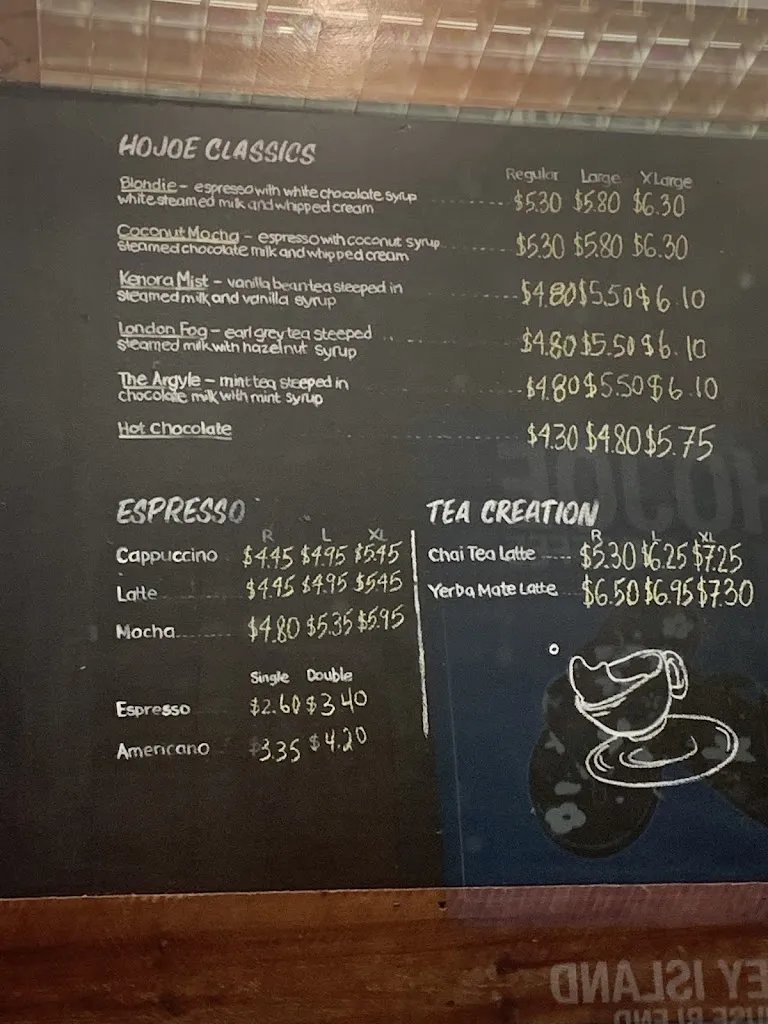 HOJOE CLASSICS
Regular Large XLarge
Blondie - espresso with white chocolate syrup
white steamed milk and whipped cream $5.30 $5.80 $6.30
Coconut Mocha - espresso with coconut syrup
steamed chocolate milk and whipped cream $5.30 $5.80 $6.30
Kenora Mist - vanilla bean tea steeped in
steamed milk and vanilla syrup $4.80 $5.50 $6.10
London Fog - earl grey tea steeped
steamed milk with hazelnut syrup $4.80 $5.50 $6.10
The Argyle - mint tea steeped in
chocolate milk with mint syrup $4.80 $5.50 $6.10
Hot Chocolate $4.30 $4.80 $5.75
ESPRESSO
R L XL
Cappuccino $4.45 $4.95 $5.45
Latte $4.45 $4.95 $5.45
Mocha $4.80 $5.35 $5.95
Single Double
Espresso $2.60 $3.40
Americano $3.35 $4.20
TEA CREATION
R L XL
Chai Tea Latte $5.30 $6.25 $7.25
Yerba Mate Latte $6.50 $6.95 $7.30
HOJOE
EY ISLAND
USE BLEND